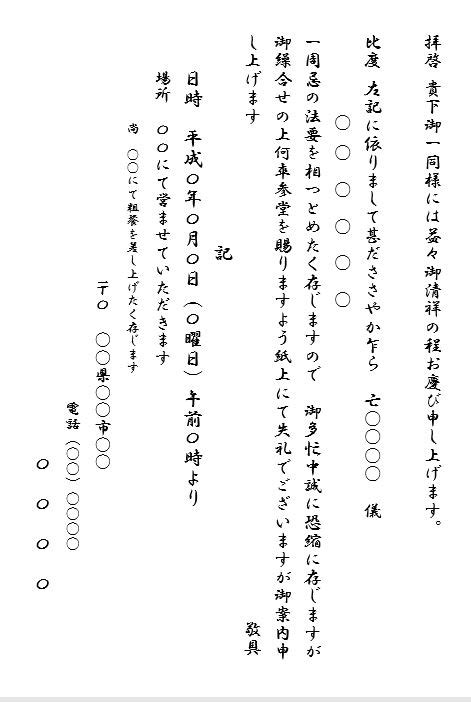 拝啓 貴下御一同様には益々御清祥の程お慶び申し上げます。
比度 左記に依りまして甚だささやか乍ら 亡〇〇〇〇 儀
〇〇〇〇〇〇
一周忌の法要を相つとめたく存じますので 御多忙中誠に恐縮に存じますが
御繰合せの上何卒参堂を賜りますよう紙上にて失礼でございますが御案内申
し上げます 敬具
記
日時 平成〇年〇月〇日(〇曜日)午前〇時より
場所 〇〇にて営ませていただきます
尚 〇〇にて粗餐を差し上げたく存じます
〒〇 〇〇県〇〇市〇〇
電話(〇〇)〇〇〇〇
〇〇〇〇